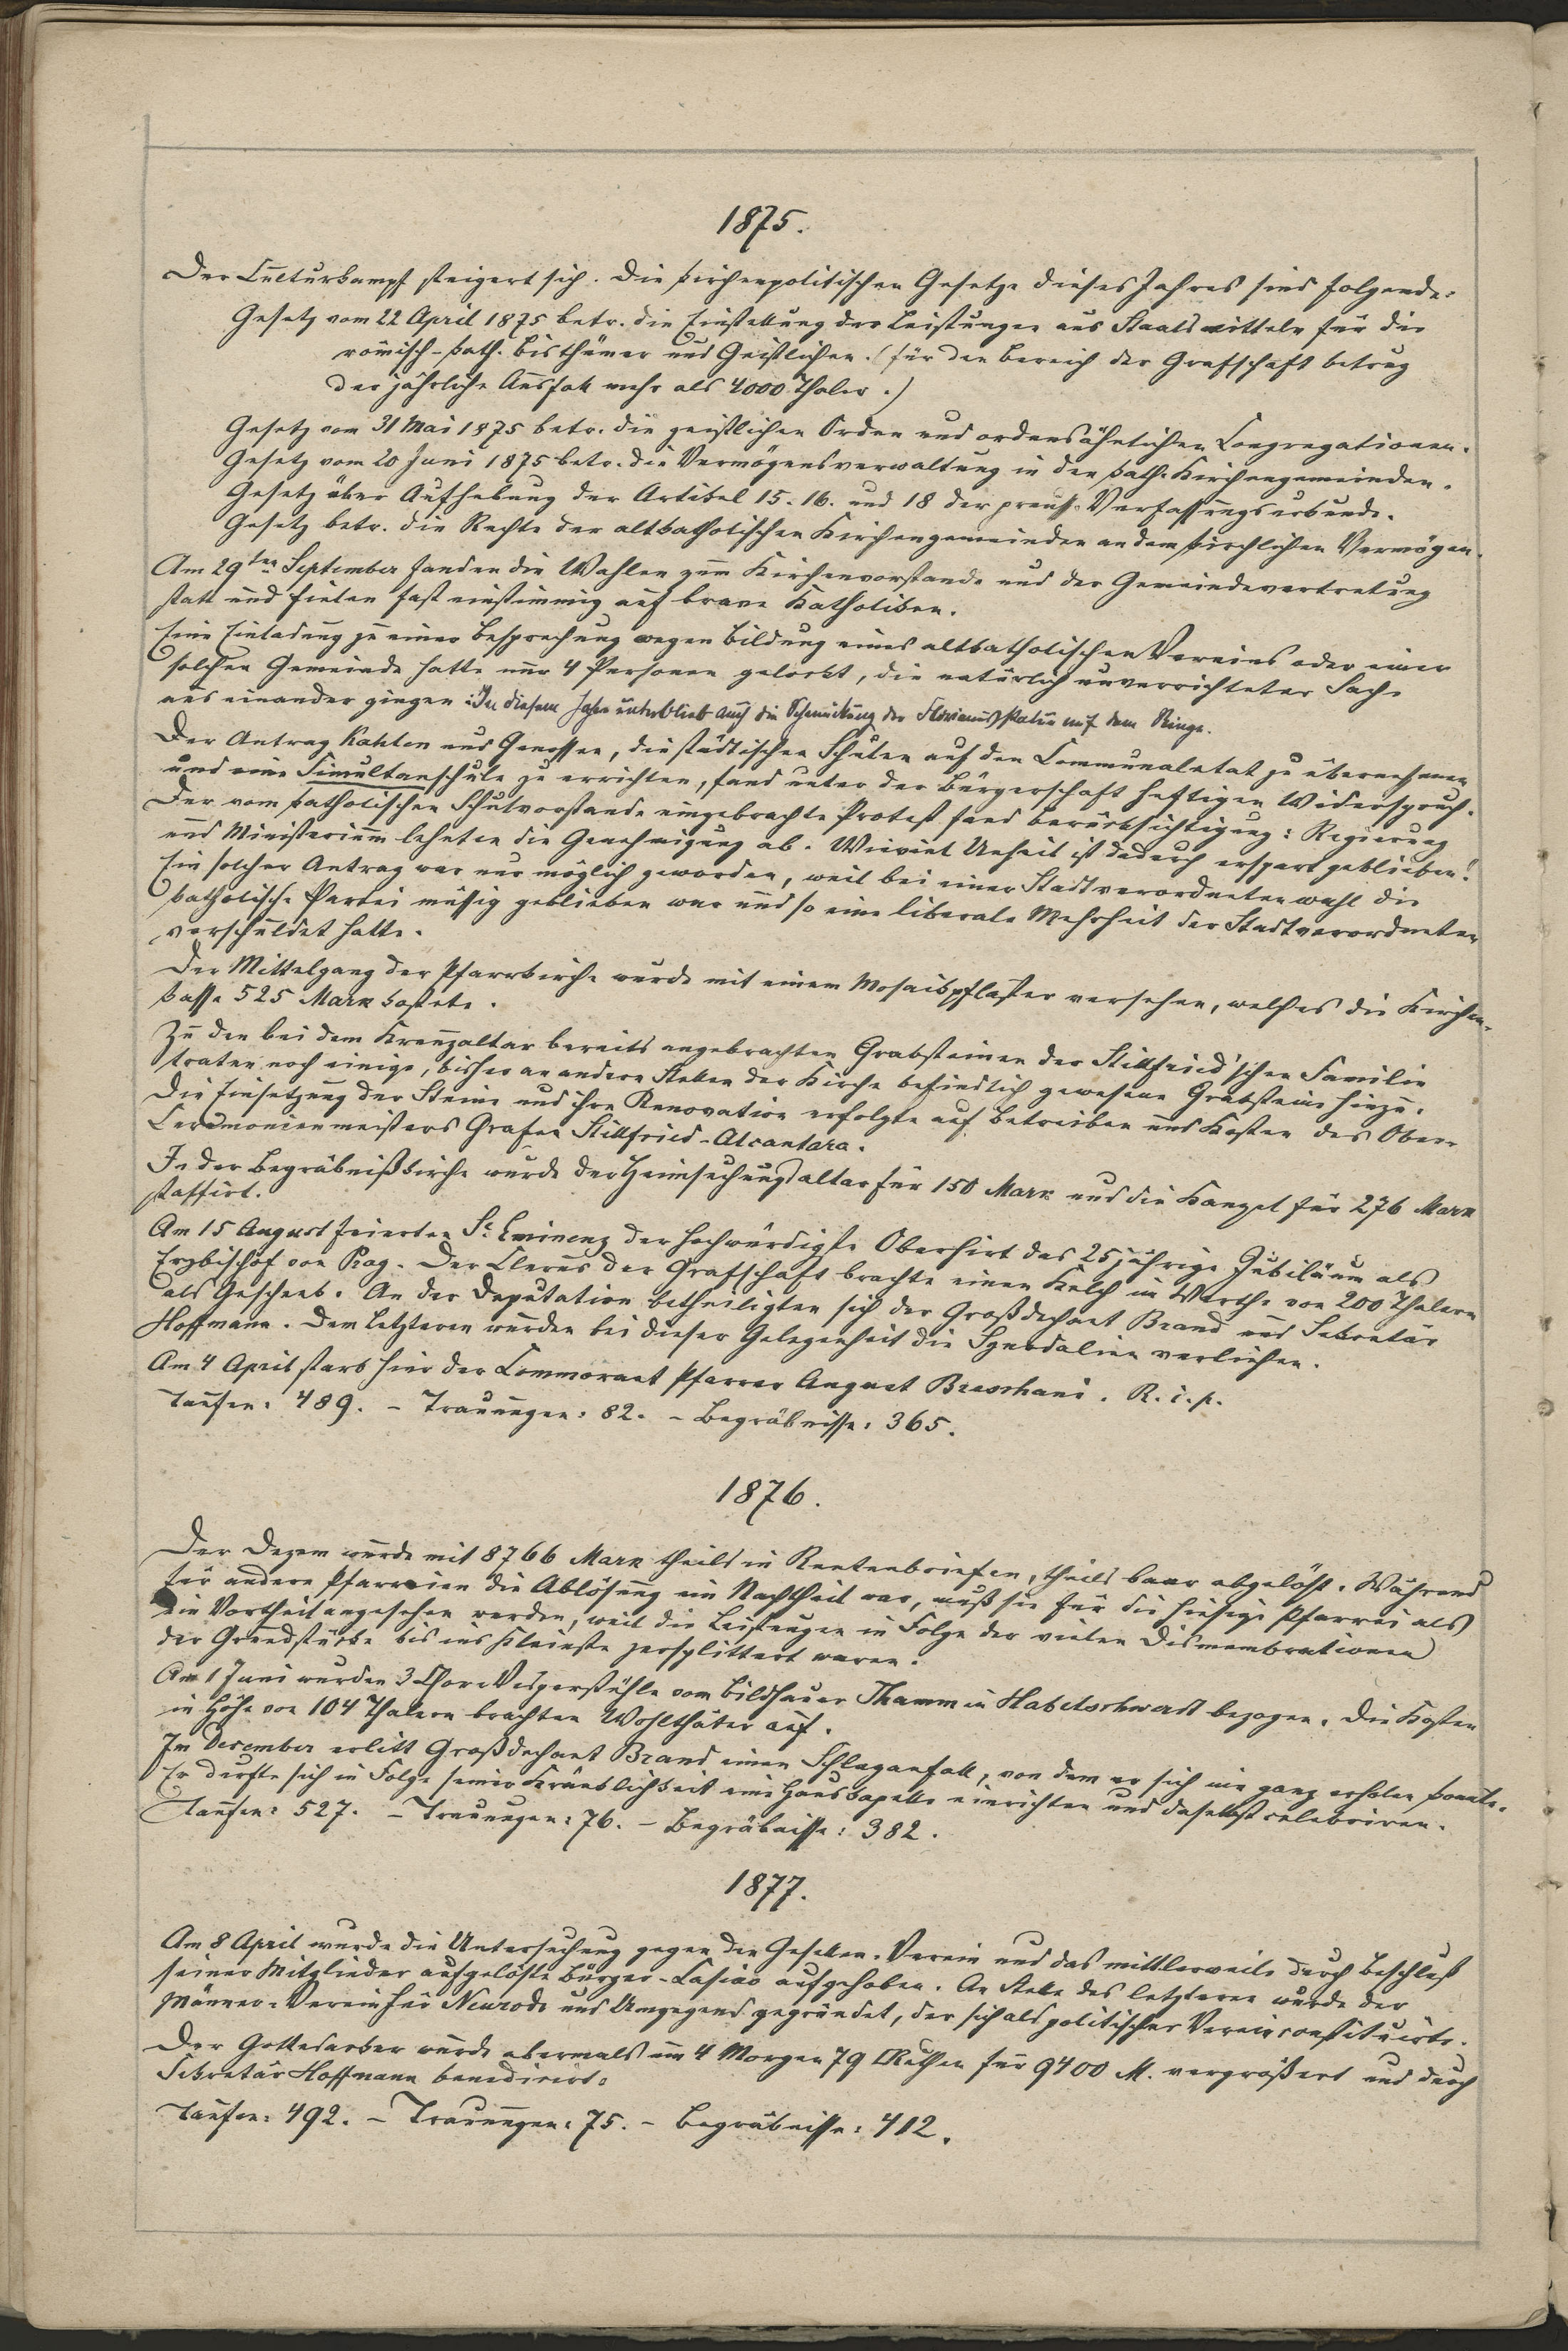 1875.
Der Culturkampf steigert sich. Die kirchenpolitischen Gesetze dieses Jahres sind folgende:
Gesetz vom 22 April 1875 betr. die Einstellung der Leistungen aus Staatsmitteln für die
römisch-kath. Bisthümer und Geistlichen. (für den Bereich der Grafschaft betrug
der jährliche Ausfall mehr als 4000 Thaler.)
Gesetz vom 31 Mai 1875 betr. die geistlichen Orden und ordensähnlichen Congregationen.
Gesetz vom 20 Juni 1875 betr. die Vermögensverwaltung in den kath. Kirchengemeinden.
Gesetz über Aufhebung der Artikel 15. 16. und 18 der preuss. Verfassungsurkunde.
Gesetz betr. die Rechte der altkatholischen Kirchengemeinden an dem kirchlichen Vermögen.
Am 29ten September fanden die Wahlen zum Kirchenvorstande und der Gemeindevertretung
statt und fielen fast einstimmig auf brave Katholiken.
Eine Einladung zu einer Besprechung wegen Bildung eines altkatholischen Vereins oder einer
solchen Gemeinde hatte nur 4 Personen gelockt, die natürlich unverrichteter Sache
aus einander gingen. In diesem Jahre unterblieb auch die Schmückung der Florianusstatue auf dem Ringe.
Der Antrag Kahlen und Genossen, die städtischen Schulen auf den Communaletat zu übernehmen
und eine Simultanschule zu errichten, fand unter der Bürgerschaft heftigen Widerspruch.
Der vom katholischen Schulvorstande eingebrachte Protest fand Berücksichtigung: Regierung
und Ministerium lehnten die Genehmigung ab. Wieviel Unheil ist dadurch erspart geblieben!
Ein solcher Antrag war nur möglich geworden, weil bei einer Stadtverordnetenwahl die
katholische Partei müssig geblieben war und so eine liberale Mehrheit der Stadtverordneten
verschuldet hatte.
Der Mittelgang der Pfarrkirche wurde mit einem Mosaikpflaster versehen, welches die Kirchen-
kasse 525 Mark kostete.
Zu den bei dem Kreuzaltar bereits angebrachten Grabsteinen der Stillfried'schen Familie
traten noch einige, bisher an andern Stellen der Kirche befindlich gewesene Grabsteine hinzu.
Die Einsetzung der Steine und ihre Renovation erfolgte auf Betreiben und Kosten des Ober-
Ceremonienmeisters Grafen Stillfried-Alcantara.
In der Begräbnißkirche wurde der Heimsuchungsaltar für 150 Mark und die Kanzel für 276 Mark
staffirt.
Am 15 August feierten Se Eminenz der hochwürdigste Oberhirt das 25jährige Jubiläum als
Erzbischof von Prag. Der Clerus der Grafschaft brachte einen Kelch im Werthe von 200 Thalern
als Geschenk. An der Deputation betheiligten sich der Großdechant Brand und Sekretär
Hoffmann. Dem letzteren wurden bei dieser Gelegenheit die Synodalien verliehen.
Am 4 April starb hier der Commorant Pfarrer August. R.i.p.
Taufen: 489. - Trauungen: 82. - Begräbnisse: 365.
1876.
Der Dezem wurde mit 8766 Mark theils in Rentenbriefen, theils baar abgelöst. Während
für andere Pfarreien die Ablösung ein Nachtheil war, muß sie für die hiesige Pfarrei als
ein Vortheil angesehen werden, weil die Leistungen in Folge der vielen Dismembrationen
der Grundstücke bis ins Kleinste zersplittert waren.
Am 1 Juni wurden 3 Chor-Vesperstühle vom Bildhauer Thamm in Habelschwerdt bezogen. Die Kosten
in Höhe von 104 Thalern brachten Wohlthäter auf.
Im Dezember erlitt Großdechant Brand einen Schlaganfall, von dem er sich nie ganz erholen konnte.
Er durfte sich in Folge seiner Kränklichkeit eine Hauskapelle einrichten und daselbst celebriren.
Taufen: 527. - Trauungen: 76. - Begräbnisse: 382.
1877.
Am 8 April wurde die Untersuchung gegen den Gesellen-Verein und das mittlerweile durch Beschluß
seiner Mitglieder aufgelöste Bürger-Casino aufgehoben. An Stelle des letzteren wurde der
Männer-Verein für Neurode und Umgegend gegründet, der sich als politischer Verein constituirte.
Der Gottesacker wurde abermals um 4 Morgen 79 □Ruthen für 9400 M. vergrößert und durch
Sekretär Hoffmann benedicirt.
Taufen: 492. - Trauungen: 75. - Begräbnisse: 412.